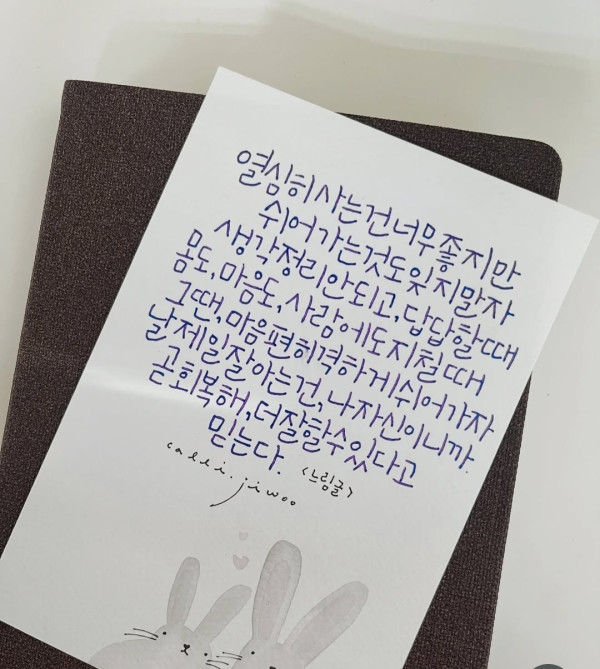 열심히 사는건 너무 좋지만
쉬어가는것도 잊지말자
생각정리 안되고, 답답할때
몸도, 마음도, 사람에도 지칠때
그땐, 마음편히 격하게 쉬어가자
날 제일 잘 아는건, 나 자신이니까.
곧 회복해, 더 잘할 수 있다고
믿는다.
<느림글>
calli. jiwoo